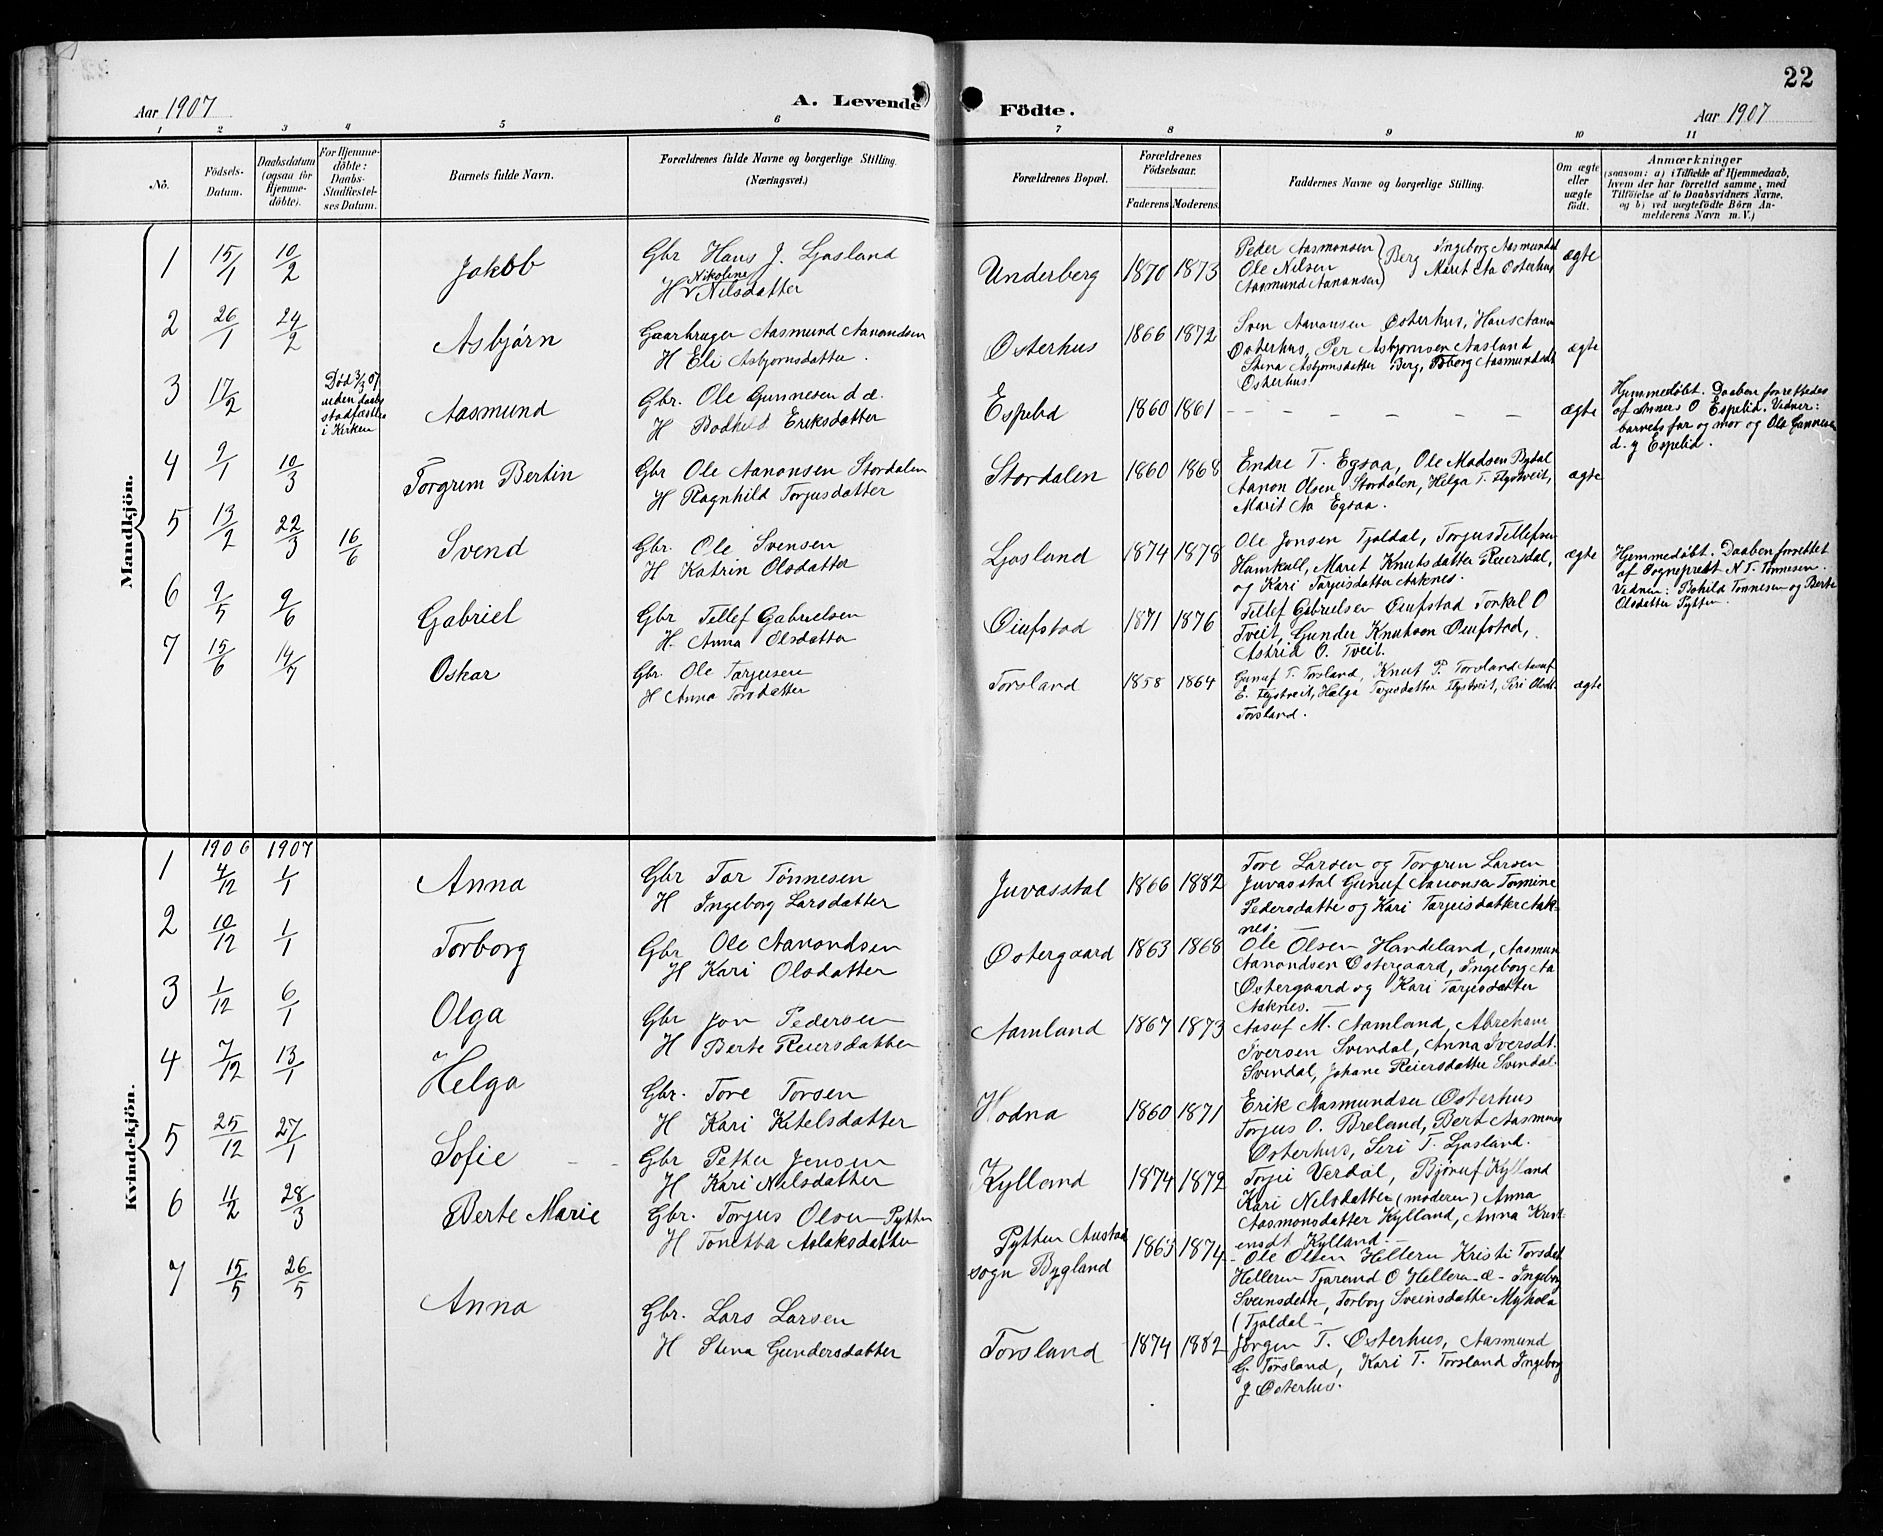 22
Aar 1907
A. Levende
Födte.
Aar 1907
1 2 3 4 5 6 7 8 9 10 11
No.
Födsels-
Datum.
Daabsdatum
(ogsaa for
Hjemme-
döbte).
For Hjemme-
döbte:
Daabs-
Stadfæstel-
ses Datum.
Barnets fulde Navn.
Forældrenes fulde Navne og borgerlige Stilling.
(Næringsvei.)
Forældrenes Bopæl.
Forældrenes
Födselsaar.
Faderens Moderens.
Faddernes Navne og borgerlige Stilling.
Om ægte
eller
uægte
födt.
Anmærkninger
(saasom: a) i Tilfælde af Hjemmedaab,
hvem der har forrettet samme, med
Tilföielse af to Daabsvidners Navne,
og b) ved uægtefödte Börn An-
melderens Navn m. V.)
Mandkjön.
1 15/1 10/2
Jakob
Gbr Hans J. Ljosland
Nikoline
H Nilsdatter
Underberg 1870 1873
Peder Aasmonsen
Ole Nilsen
Aasmund Aanonsen
Berg
Ingeborg Aasmundsd
Marit Aa Osterhus
ægte
2 26/1 24/2
Asbjørn
Gaarbruger Aasmund Aanondsen
H Eli Asbjornsdatter.
Osterhus 1866 1872
Sven Aanonsen Osterhus, Hans Aanon
Osterhus, Per Asbjornsen Aasland
Stina Asbjornsdatter Berg, Torborg Aasmundsdt
Osterhus.
ægte
3 17/2
Död 3/3 07
uden daabs
stadfæstelse
i Kirken
Aasmund
Gbr. Ole Gunnesen d.æ.
H Bodhild Eriksdatter
Espelid 1860 1861
– – – – – – –
ægte
Hjemmedöbt. Daaben forrettedes
af Anners O Espelid. Vidner:
barnets far og mor og Ole Gunnesen
d. y Espelid.
4 9/1 10/3
Torgrem Bertin
Gbr Ole Aanonsen Stordalen
H Ragnhild Torjusdatter
Stordalen 1860 1868
Endre T. Egsaa, Ole Madsen Bydal
Aanon Olsen Stordalen, Helga T. Flystveit,
Marit Aa Egsaa.
ægte
5 13/2 22/3 16/6
Svend
Gbr. Ole Svensen
H Katrin Olsdatter
Ljosland 1874 1878
Ole Jonsen Tjaldal, Torjus Tellefsen
Hamkoll, Marit Knutsdatter Reiersdal,
og Kari Tarjeisdatter Aaknes.
ægte
Hjemmedöbt. Daaben forrettet
af Sogneprest N T. Tönnesen.
Vidner: Bohild Tonnesen og Berte
Olsdatter Pytten.
6 9/5 9/6
Gabriel
Gbr Tellef Gabrielsen
H. Anna Olsdatter
Oiufstad 1871 1876
Tellef Gabrielsen Oiufstad Torkel O
Tveit, Gunder Knutsen Oiufstad,
Astrid O. Tveit.
7 15/6 14/7
Oskar
Gbr. Ole Tarjusen
H Anna Torsdatter
Torsland 1858 1864
Gunuf T. Torsland, Knut P. Torsland Aasuf
E. Flystveit, Hælga Tarjesdatter Flystveit, Siri Olsdt.
Torsland.
ægte
Kvindekjön.
1906 1907
1 4/12 1/1
Anna
Gbr Tar Tönnesen
H Ingeborg Larsdatter
Juvasstøl 1866 1882
Tore Larsen og Torgren Larsen
Juvasstøl Gunuf Aanonsen Tomine
Pedersdatte og Kari Tarjeisdatter Aak-
nes.
2 10/12 1/1
Torborg
Gbr Ole Aanondsen
H Kari Olsdatter
Østergaard 1863 1868
Ole Olsen Handeland, Aasmun
Aanondsen Ostergaard, Ingeborg Aa
Ostergaard og Kari Tarjesdatter
Aaknes.
3 1/12 6/1
Olga
Gbr Jon Pedersen
H Berte Reiersdatter
Aamland 1867 1873
Aasuf M. Aamland, Abreham
Iversen Svendal, Anna Iversdt.
Svendal, Johane Reiersdatter Svendal.
4 7/12 13/1
Helga
Gbr. Tore Torsen
H Kari Ketelsdatter
Hodna 1860 1871
Erik Aasmundsen Osterhus
Torjus O. Breland, Bert Aasmun
Osterhus, Siri T. Ljosland.
5 25/12 27/1
Sofie
Gbr Petter Jensen
H Kari Nilsdatter
Kylland 1874 1872
Torjei Verdal, Bjøruf Kylland
Kari Nilsdatter (moderen) Anna
Aasmonsdatter Kylland, Anna Krist-
ensdt Kylland.
6 11/2 28/3
Berte Marie
Gbr. Torjus Olsen Pytten
H Tonetha Aslaksdatter
Pytten Austad
sogn Bygland 1865 1874
Ole Olsen Helleren Kristi Torsdat
Helleren Tjærand O Helleren – Ingeborg
Sveinsdette, Torborg Sveinsdatter
(Tjaldal –
7 15/5 26/5
Anna
Gbr. Lars Larsen
H Stina Gundersdatter
Torsland 1874 1882
Jörgen T. Osterhus, Aasmund
G. Torsland, Kari T. Torsland Ingeborg
J Osterhus.